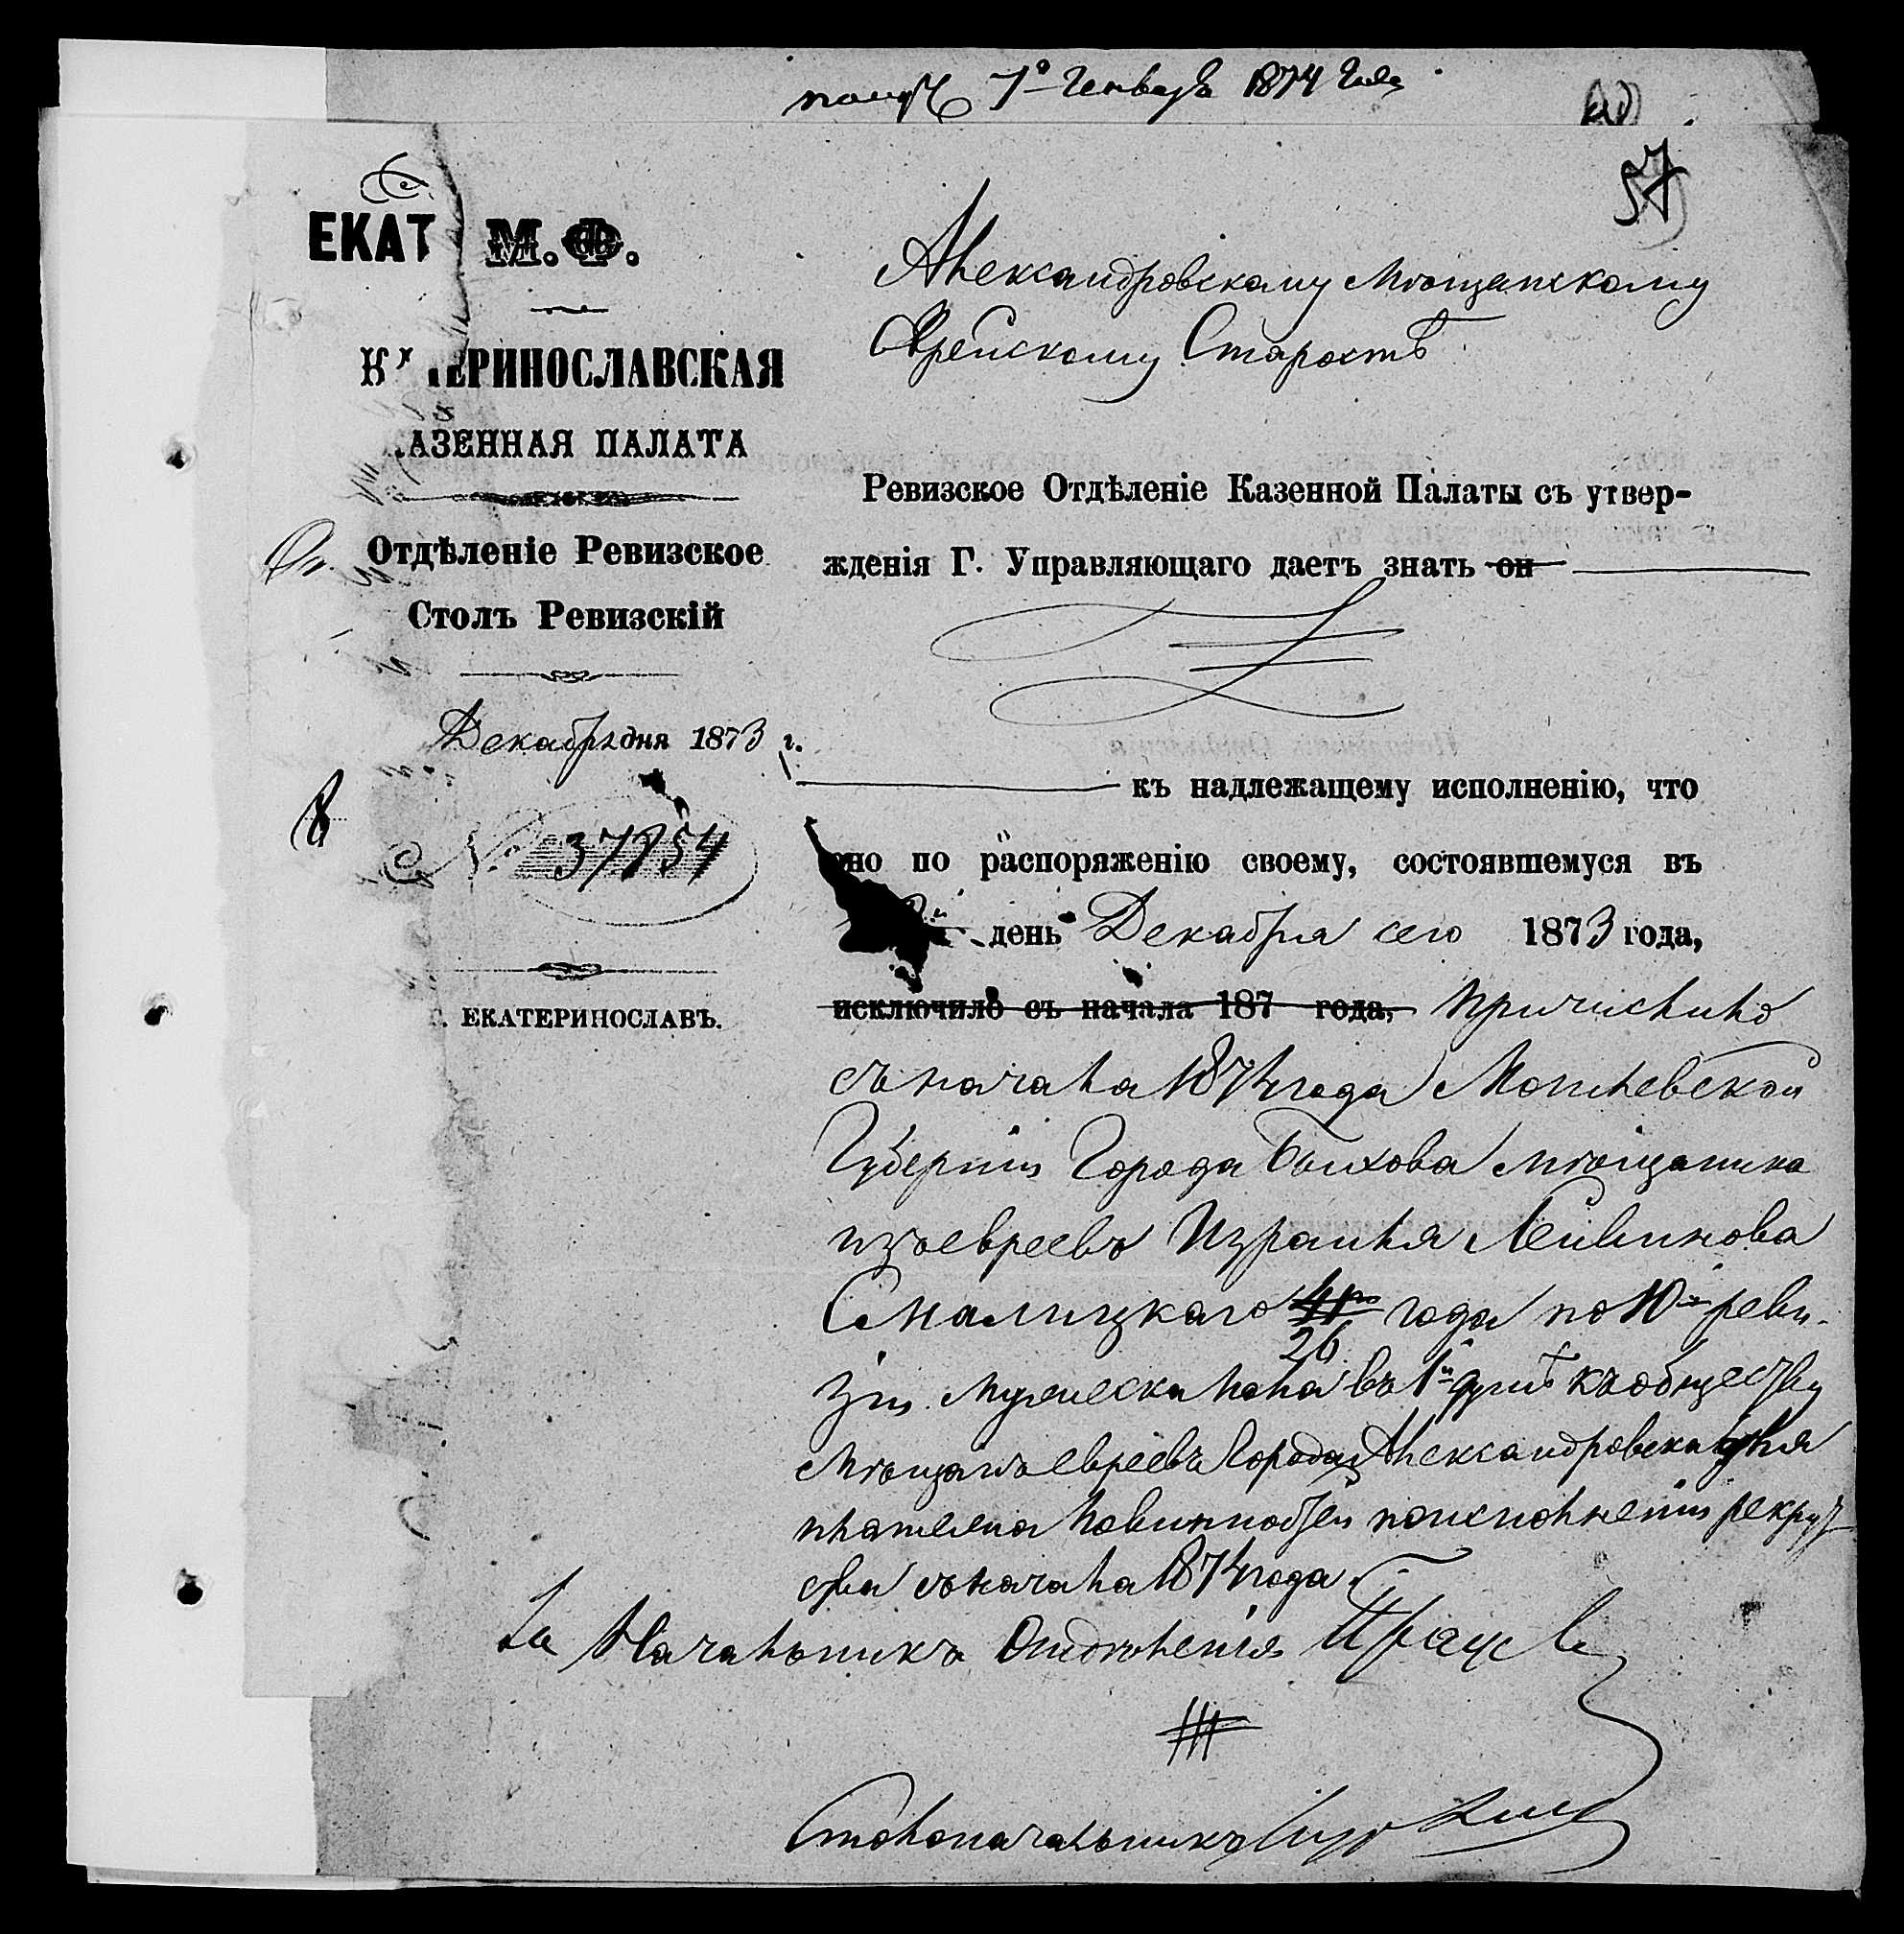 получ 7º Генваря 1874 Года
57
ЕКАТ
М. Ф.
ЕКАТЕРИНОСЛАВСКАЯ
КАЗЕННАЯ ПАЛАТА
Отдѣленіе Ревизское
Столъ Ревизскій
Декабря дня 1873 г.
№ 37854
Г. ЕКАТЕРИНОСЛАВЪ.
Александровскому Мѣщанскому
Еврейскому Старостѣ
Ревизское Отдѣленіе Казенной Палаты съ утвер-
жденія Г. Управляющаго даетъ знать он
къ надлежащему исполненію, что
оно по распоряженію своему, состоявшемуся въ
день Декабря сего 1873 года,
исключило съ начала 187 года, причислило
съ начала 1874 года Могилевской
Губерніи Города Быхова мѣщанина
изъ евреевъ Израиля Лейвикова
Смолицкаго 41 го года по 10й реви-
26
зіи мужеска пола въ 1й душѣ къ обществу
Мѣщанъ евреевъ Города Александровска для
платежа повинностей по исполненію рекрут
ства съ начала 1874 года.
За Начальникъ Отдѣленія
Столоначальникъ